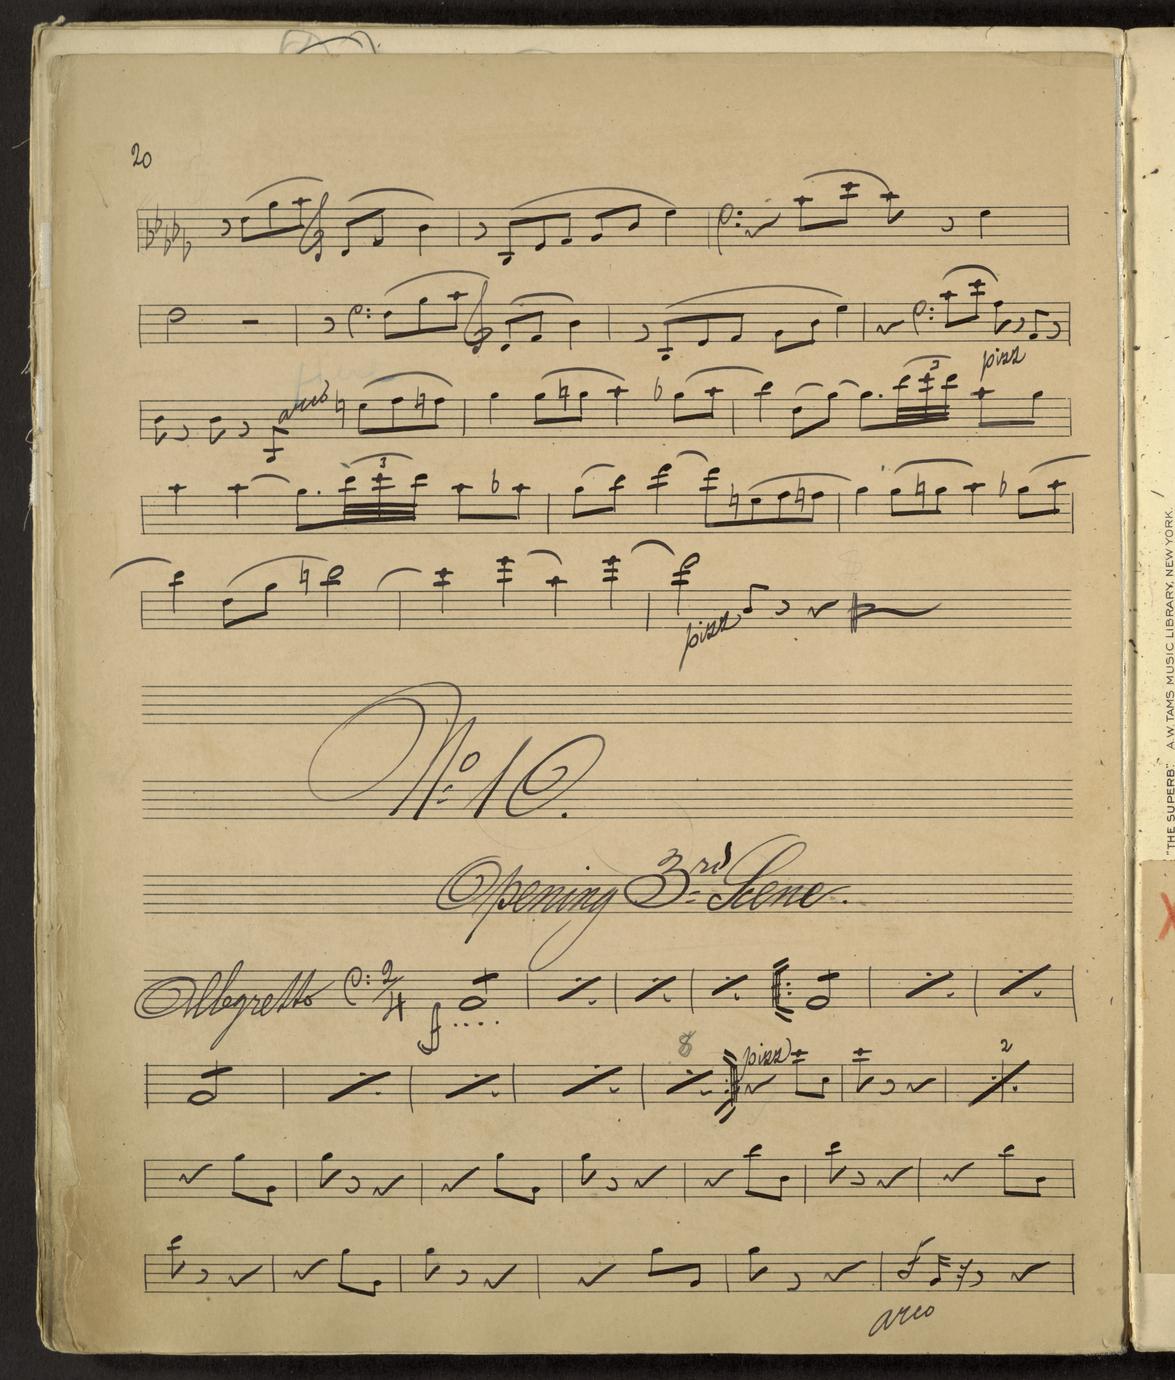 20
pizz
arco
3
3
pizz
No. 10.
Opening 3rd Scene.
Allegretto 2/4
f
8
pizz
2
f
arco
"THE SUPERB." A.W. TAMS MUSIC LIBRARY, NEW YORK.
X